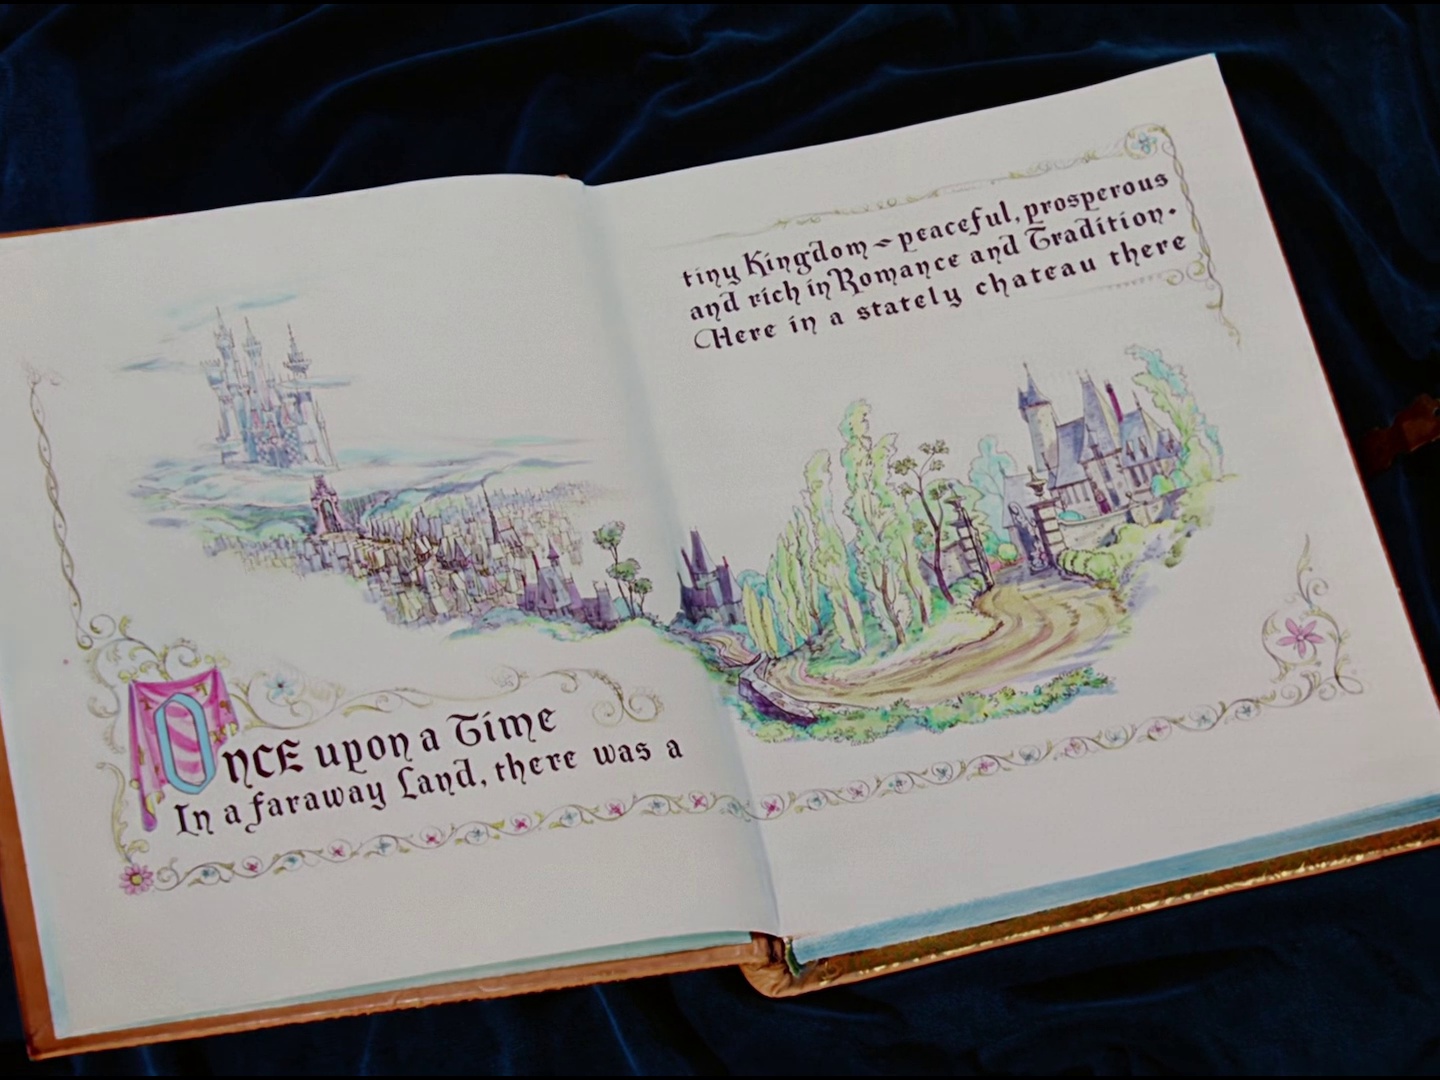 Once upon a Time
In a faraway Land, there was a
tiny Kingdom - peaceful, prosperous
and rich in Romance and Tradition.
Here in a stately chateau there